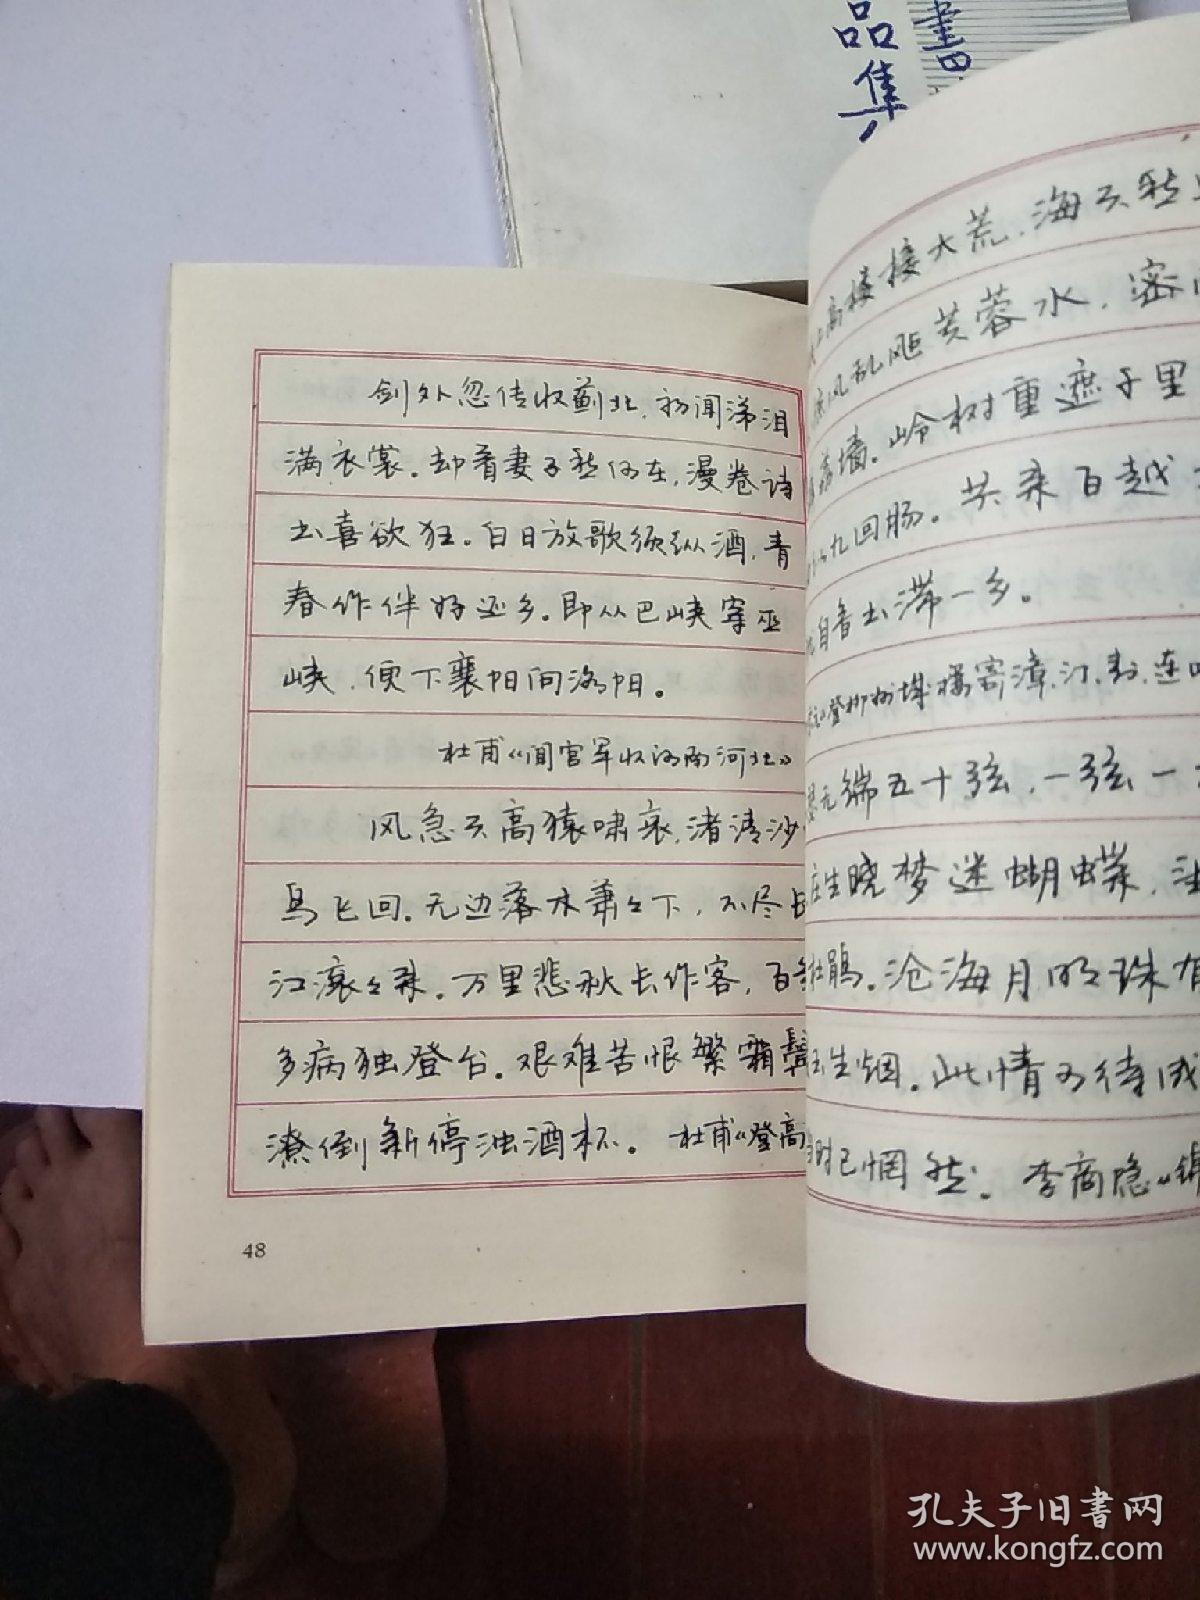 書
品集
剑外忽传收蓟北，初闻涕泪
满衣裳。却看妻子愁何在，漫卷诗
书喜欲狂。白日放歌须纵酒，青
春作伴好还乡。即从巴峡穿巫
峡，便下襄阳向洛阳。
杜甫《闻官军收河南河北》
风急天高猿啸哀，渚清沙
鸟飞回。无边落木萧々下，不尽长
江滚々来。万里悲秋长作客，百年
多病独登台。艰难苦恨繁霜鬓
潦倒新停浊酒杯。 杜甫《登高
48
上高楼接大荒，海天愁
风乱飐芙蓉水，密
荔墙。岭树重遮千里
九回肠。共来百越
自音书滞一乡。
登柳州城楼寄漳、汀、封、连
瑟无端五十弦，一弦一
庄生晓梦迷蝴蝶，
杜鹃。沧海月明珠有
玉生烟。此情可待成
时已惘然。 李商隐《锦
孔夫子旧书网
www.kongfz.com